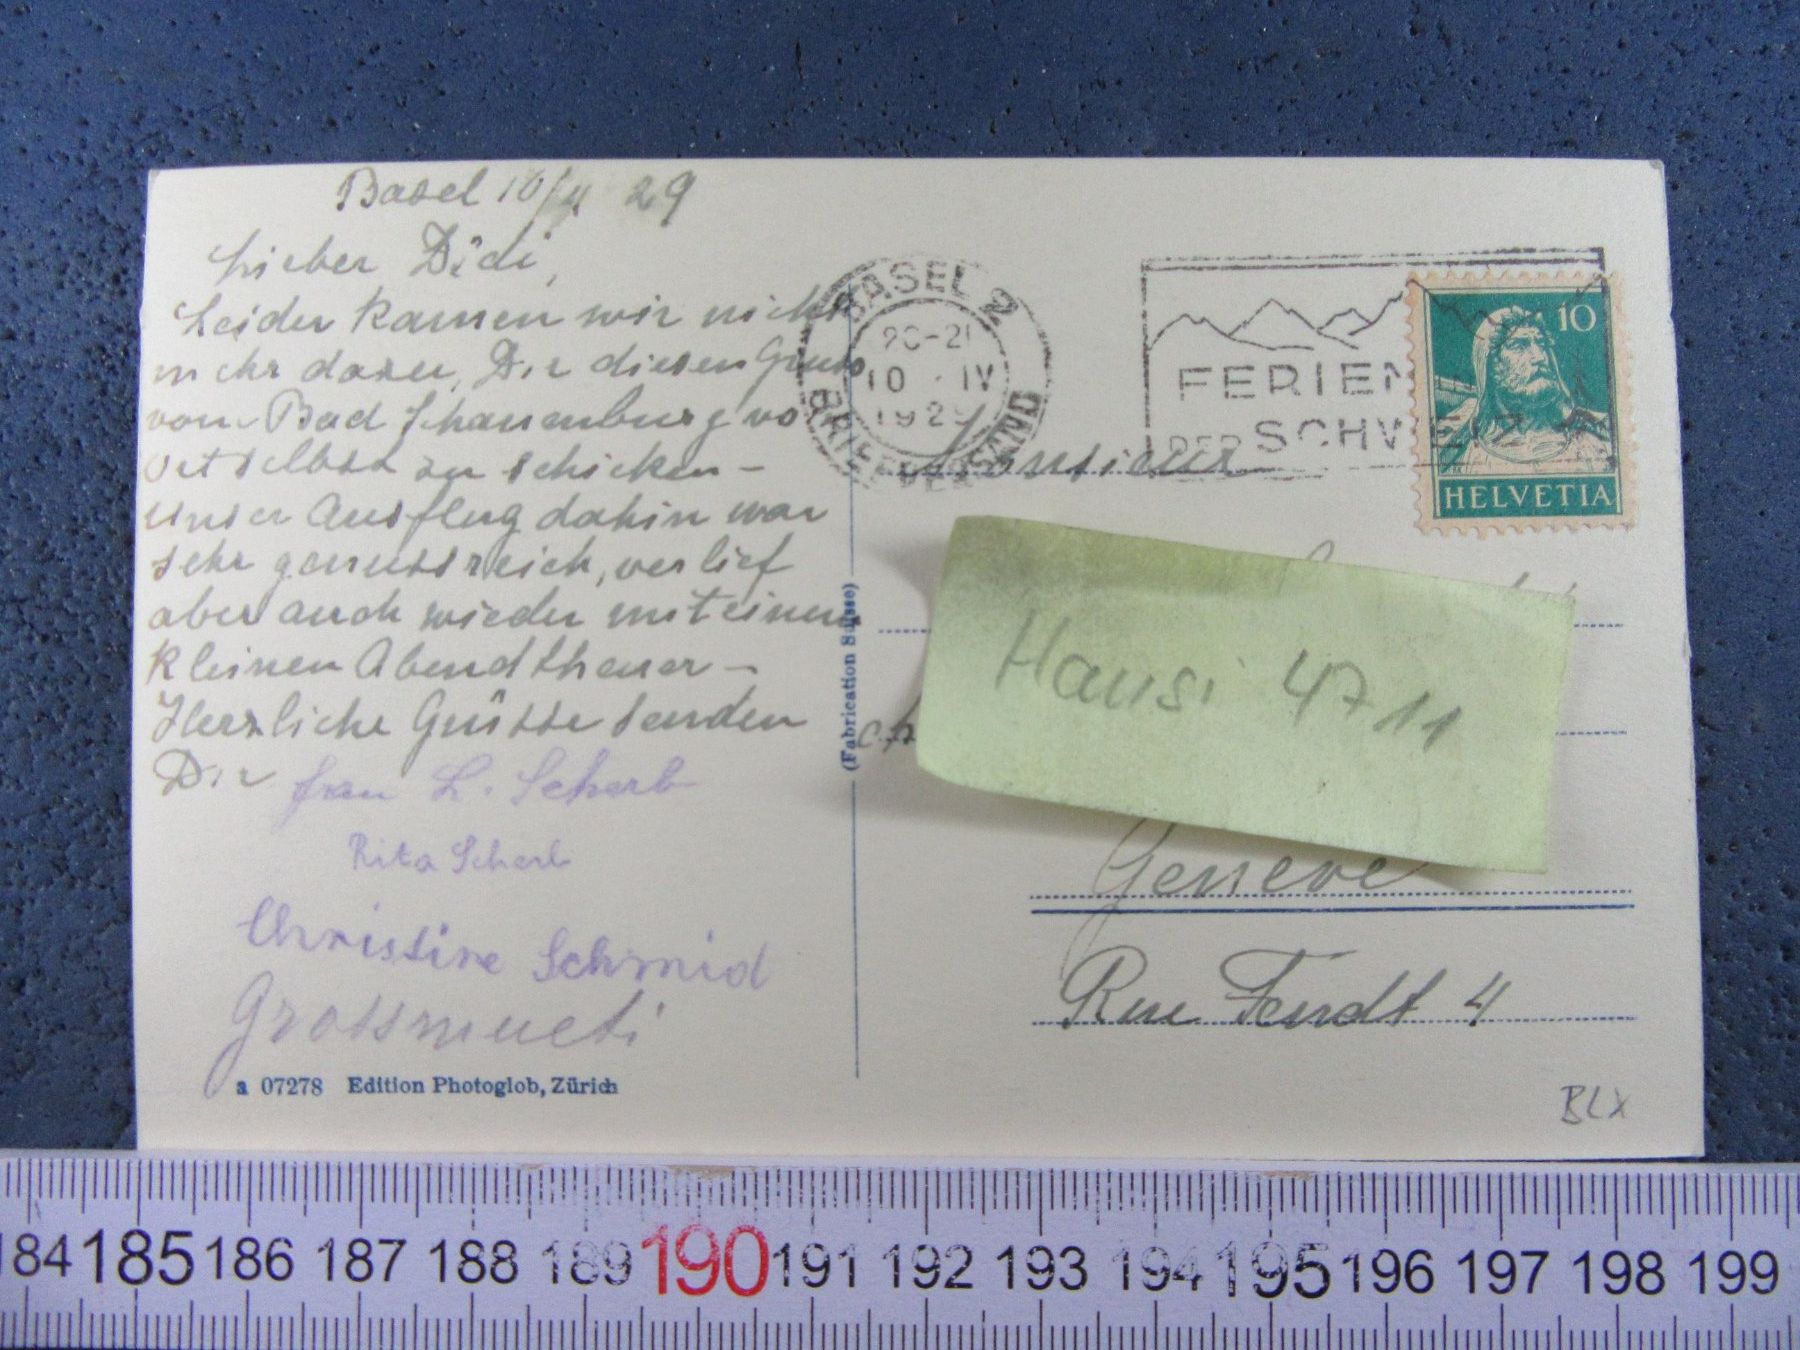 Basel 10/4 29
Lieber Didi,
Leider kamen wir nicht
mehr dazu, Dir diesen Gruss
von Bad Schauenburg vo
Ort selbst zu schicken –
unser Ausflug dahin war
sehr genussreich, verlief
aber auch wieder mit einem
kleinen Abendtheuer –
Herzliche Grüsse senden
Dir Frau L. Scherb
Rita Scherb
Christine Schmid
Grossmueti
a 07278 Edition Photoglob, Zürich
(Fabrication Suisse)
BASEL 2
20-21
10 · IV
1929
BRIEFVERSAND
FERIEN
DER SCHWEIZ
10
HELVETIA
Monsieur
Hansi 4711
Genève
Rue Fendt 4
BLX
184 185 186 187 188 189 190 191 192 193 194 195 196 197 198 199